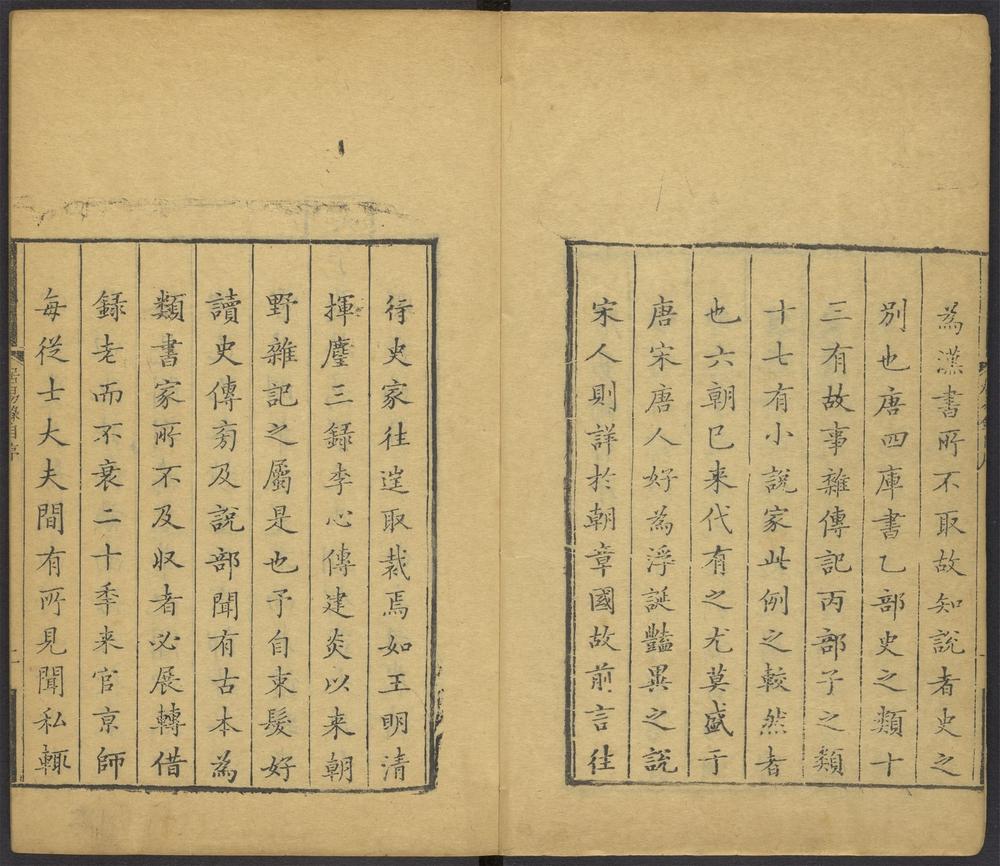 為漢書所不取故知說者史之
別也唐四庫書乙部史之類十
三有故事雜傳記丙部子之類
十七有小說家此例之較然者
也六朝已来代有之尤莫盛于
唐宋唐人好為浮誕豔異之說
宋人則詳於朝章國故前言往
行史家往逞取裁焉如王明清
揮麈三録李心傳建炎以来朝
野雜記之屬是也予自束髮好
讀史傳旁及說部聞有古本為
類書家所不及収者必展轉借
録老而不衰二十季来官京師
每從士大夫間有所見聞私輙
居易錄自序